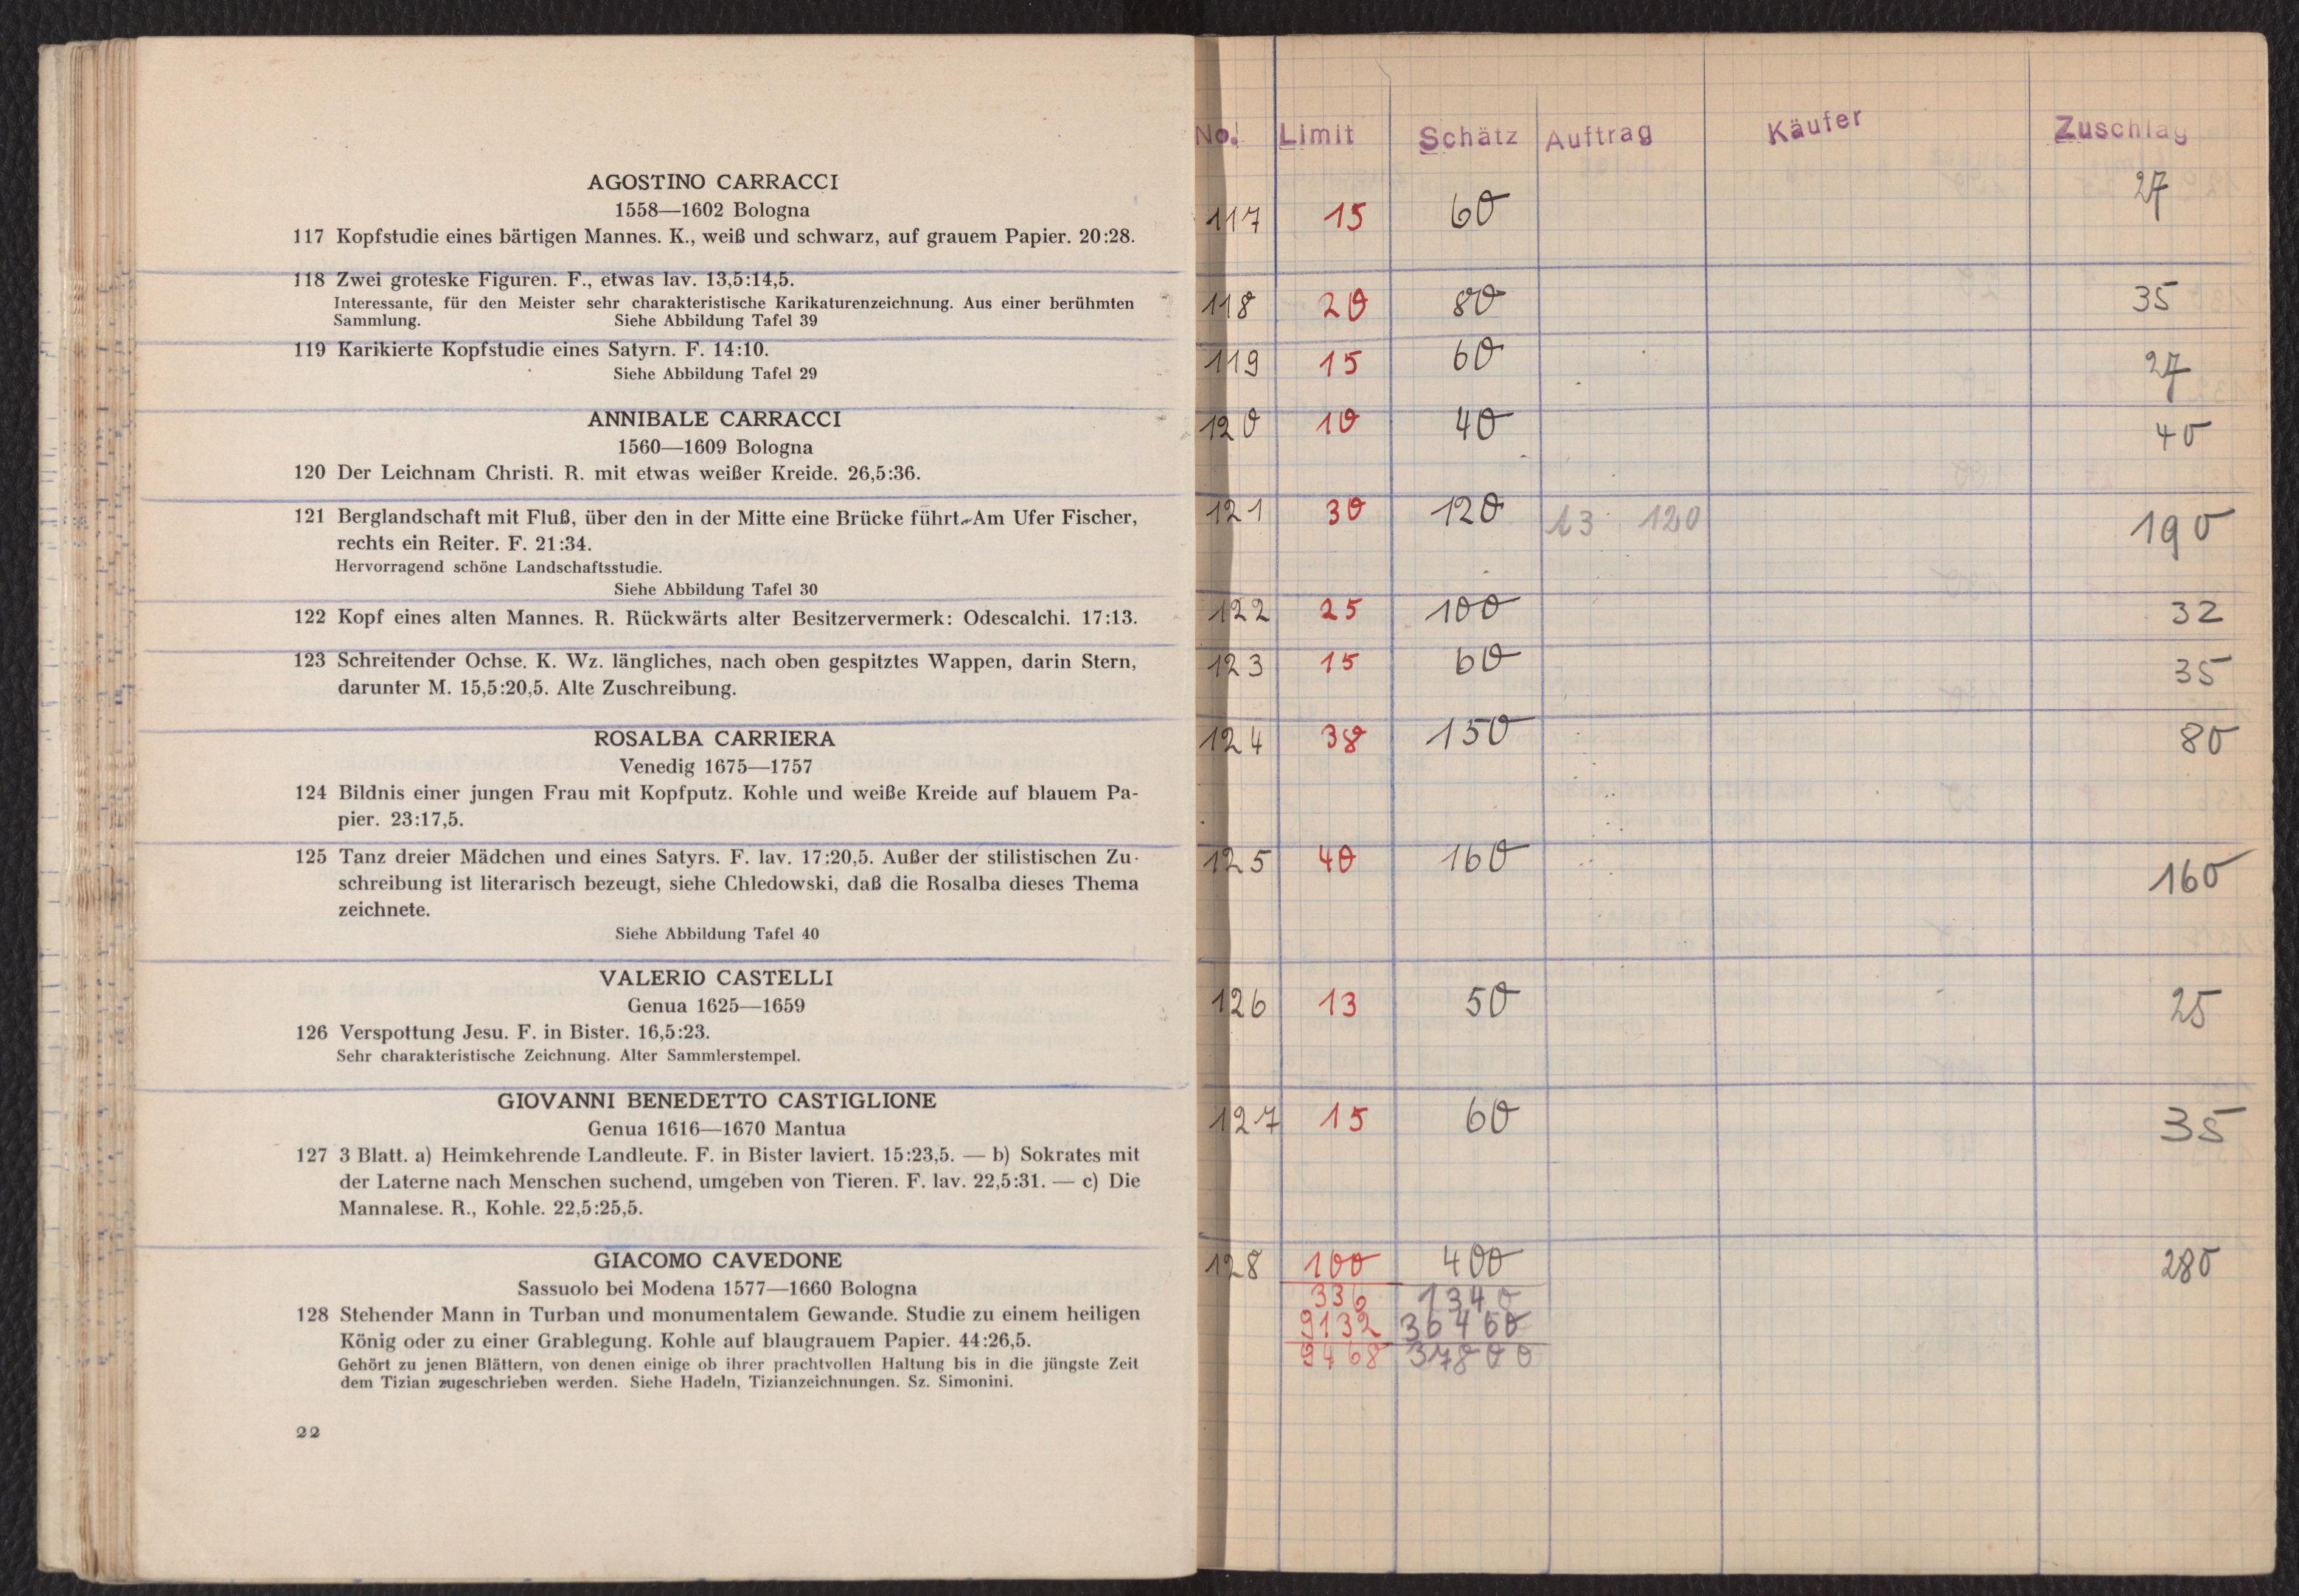 AGOSTINO CARRACCI
1558—1602 Bologna
117 Kopfstudie eines bärtigen Mannes. K., weiß und schwarz, auf grauem Papier. 20:28.
118 Zwei groteske Figuren. F., etwas lav. 13,5:14,5.
Interessante, für den Meister sehr charakteristische Karikaturenzeichnung. Aus einer berühmten
Sammlung. Siehe Abbildung Tafel 39
119 Karikierte Kopfstudie eines Satyrn. F. 14:10.
Siehe Abbildung Tafel 29
ANNIBALE CARRACCI
1560—1609 Bologna
120 Der Leichnam Christi. R. mit etwas weißer Kreide. 26,5:36.
121 Berglandschaft mit Fluß, über den in der Mitte eine Brücke führt. Am Ufer Fischer,
rechts ein Reiter. F. 21:34.
Hervorragend schöne Landschaftsstudie.
Siehe Abbildung Tafel 30
122 Kopf eines alten Mannes. R. Rückwärts alter Besitzervermerk: Odescalchi. 17:13.
123 Schreitender Ochse. K. Wz. längliches, nach oben gespitztes Wappen, darin Stern,
darunter M. 15,5:20,5. Alte Zuschreibung.
ROSALBA CARRIERA
Venedig 1675—1757
124 Bildnis einer jungen Frau mit Kopfputz. Kohle und weiße Kreide auf blauem Pa-
pier. 23:17,5.
125 Tanz dreier Mädchen und eines Satyrs. F. lav. 17:20,5. Außer der stilistischen Zu-
schreibung ist literarisch bezeugt, siehe Chledowski, daß die Rosalba dieses Thema
zeichnete.
Siehe Abbildung Tafel 40
VALERIO CASTELLI
Genua 1625—1659
126 Verspottung Jesu. F. in Bister. 16,5:23.
Sehr charakteristische Zeichnung. Alter Sammlerstempel.
GIOVANNI BENEDETTO CASTIGLIONE
Genua 1616—1670 Mantua
127 3 Blatt. a) Heimkehrende Landleute. F. in Bister laviert. 15:23,5. — b) Sokrates mit
der Laterne nach Menschen suchend, umgeben von Tieren. F. lav. 22,5:31. — c) Die
Mannalese. R., Kohle. 22,5:25,5.
GIACOMO CAVEDONE
Sassuolo bei Modena 1577—1660 Bologna
128 Stehender Mann in Turban und monumentalem Gewande. Studie zu einem heiligen
König oder zu einer Grablegung. Kohle auf blaugrauem Papier. 44:26,5.
Gehört zu jenen Blättern, von denen einige ob ihrer prachtvollen Haltung bis in die jüngste Zeit
dem Tizian zugeschrieben werden. Siehe Hadeln, Tizianzeichnungen. Sz. Simonini.
22
No. Limit Schätz Auftrag Käufer Zuschlag
117 15 60 27
118 20 80 35
119 15 60 27
120 10 40 40
121 30 120 13 120 190
122 25 100 32
123 15 60 35
124 38 150 80
125 40 160 160
126 13 50 25
127 15 60 35
128 100 400 280
336 1340
9132 36460
9468 37800